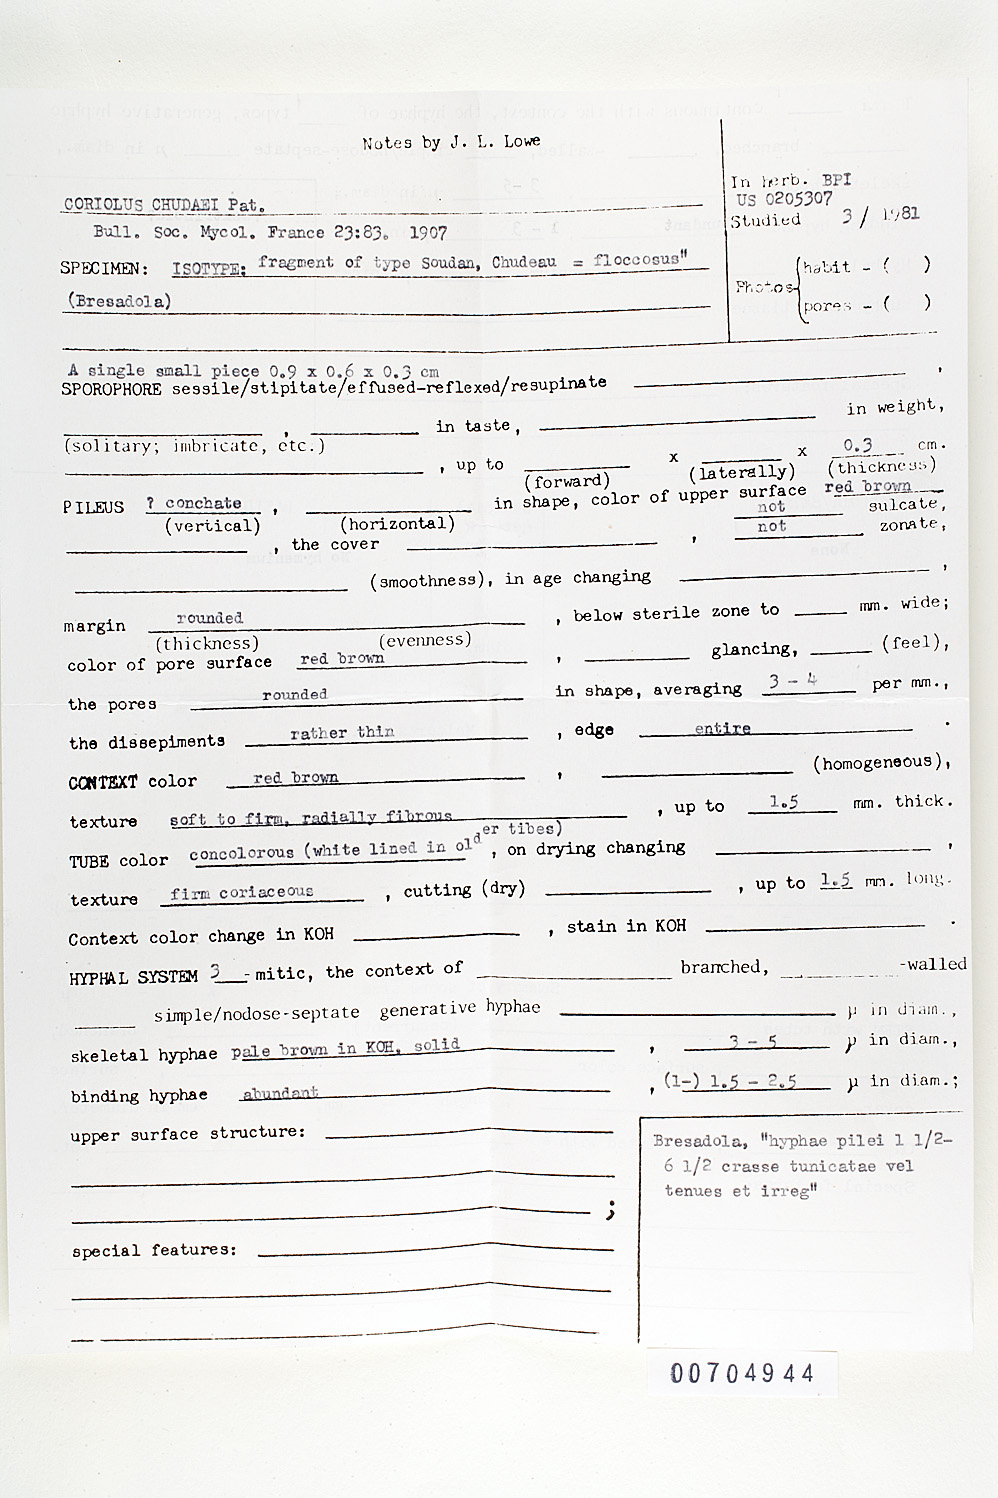 Notes by J. L. Lowe
In herb. BPI
US 0205307
Studied 3 / 1981
CORIOLUS CHUDAEI Pat.
Bull. Soc. Mycol. France 23:83. 1907
SPECIMEN: ISOTYPE: fragment of type Soudan, Chudeau = floccosus"
(Bresadola)
Photos
habit - ( )
pores - ( )
A single small piece 0.9 x 0.6 x 0.3 cm
SPOROPHORE sessile/stipitate/effused-reflexed/resupinate ,
, in taste, in weight,
(solitary; imbricate, etc.)
, up to x x 0.3 cm.
(forward) (laterally) (thickness)
PILEUS ? conchate , in shape, color of upper surface red brown
(vertical) (horizontal) not sulcate,
, the cover , not zonate,
(smoothness), in age changing ,
margin rounded , below sterile zone to mm. wide;
(thickness) (evenness)
color of pore surface red brown , glancing, (feel),
the pores rounded in shape, averaging 3 - 4 per mm.,
the dissepiments rather thin , edge entire .
CONTEXT color red brown , (homogeneous),
texture soft to firm, radially fibrous , up to 1.5 mm. thick.
TUBE color concolorous (white lined in older tibes) , on drying changing ,
texture firm coriaceous , cutting (dry) , up to 1.5 mm. long.
Context color change in KOH , stain in KOH .
HYPHAL SYSTEM 3 -mitic, the context of branched, -walled
simple/nodose-septate generative hyphae µ in diam.,
skeletal hyphae pale brown in KOH, solid , 3 - 5 µ in diam.,
binding hyphae abundant , (1-) 1.5 - 2.5 µ in diam.;
upper surface structure:
;
special features:
Bresadola, "hyphae pilei 1 1/2-
6 1/2 crasse tunicatae vel
tenues et irreg"
00704944